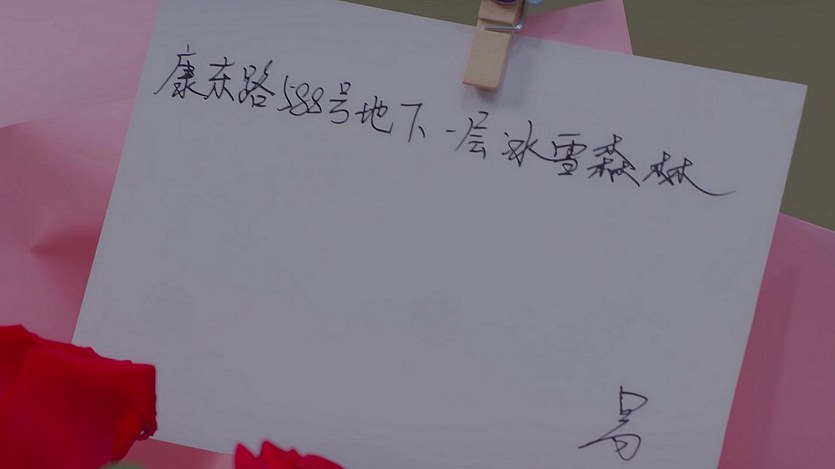 康东路588号地下一层冰雪森林
易